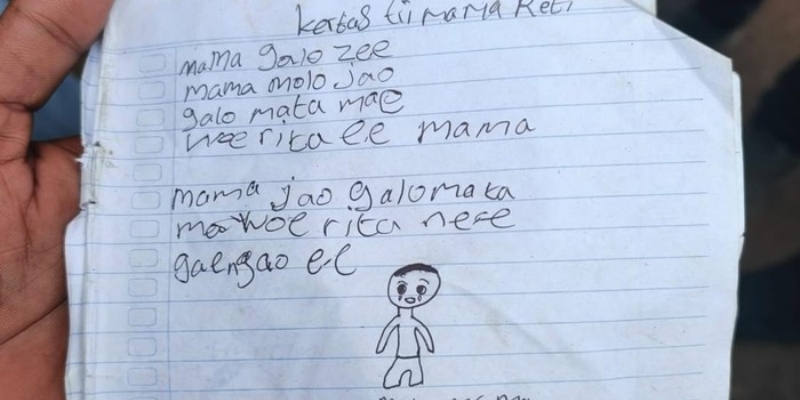 kertas tii mama Reti
mama galo zee
mama molo jao
galo mata mae
woe rita ee mama
mama jao galo mata
mae woe rita nee
gaengao ee